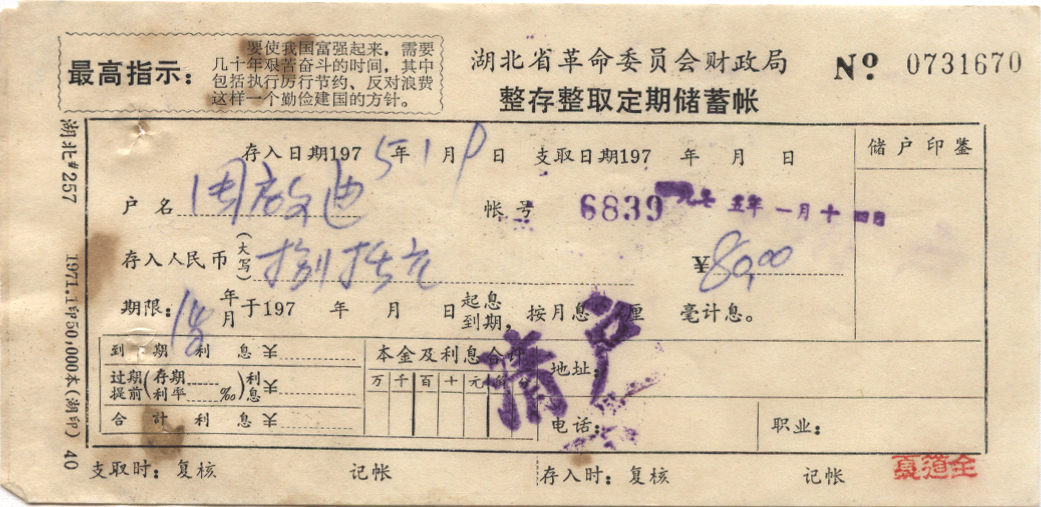 最高指示：
要使我国富强起来，需要
几十年艰苦奋斗的时间，其中
包括执行厉行节约、反对浪费
这样一个勤俭建国的方针。
湖北省革命委员会财政局
整存整取定期储蓄帐
Nº 0731670
湖北#257 1971.1印50,000本(湖印) 40
存入日期1975年1月 日 支取日期197 年 月 日
储户印鉴
户名 周啟迪 帐号 6839 一九七五年一月十四日
存入人民币(大写) 捌拾元 ¥80.00
期限：1年 年月于197 年 月 日起息到期，按月息 厘 毫计息。
清户
到期利息¥
过期提前(存期 利率 ‰)利息¥
合计利息¥
本金及利息合计
万千百十元角分
地址：
电话：
职业：
支取时：复核 记帐 存入时：复核 记帐